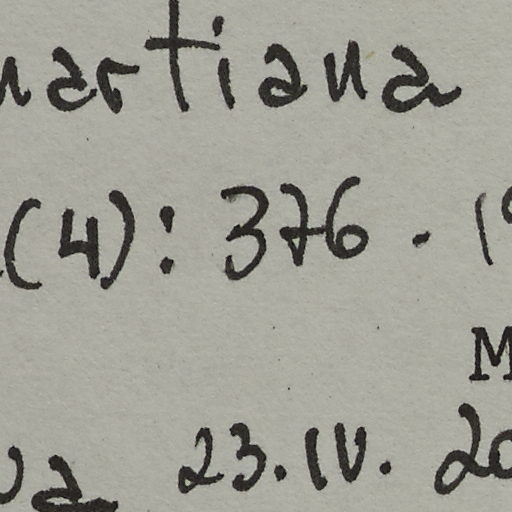 martiana
(4): 376. 19
M
va 23.IV. 20